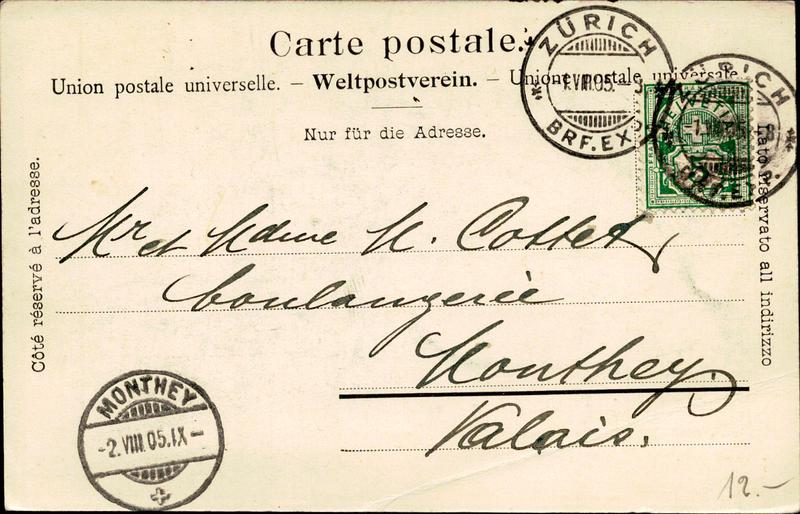 Carte postale.
Union postale universelle. – Weltpostverein. – Unione postale universale
Nur für die Adresse.
Côté réservé à l'adresse.
lato riservato all indirizzo
ZÜRICH
1.VIII.05.–
BRF.EX
ZÜRICH
HELVETIA
Mr et Mdme H. Cottet
boulangerie
Monthey
Valais.
MONTHEY
-2.VIII.05.IX-
12.-